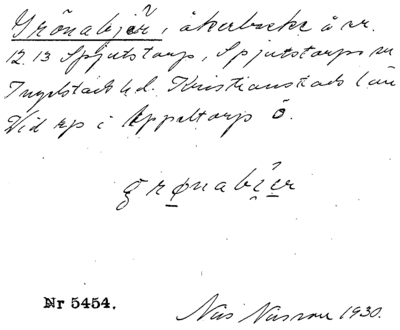 Grönabjär, åkerbacke å nr.
12.13 Spjutstorp, Spjutstorps sn
Ingelstads hd. Kristianstads län
Vid rp i Äppeltorp Ö.
grønabi̯er
Nr 5454.
Nils 1930.